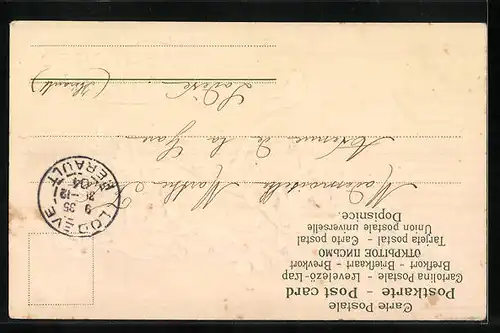 Carte Postale
Postkarte - Post card
Cartolina Postale - Levelező-Lap
Brefkort - Briefkaart - Brevkort
ОТКРЫТОЕ ПИСЬМО
Tarjeta postal - Carto postal
Union postale universelle
Dopisnice.
LODEVE
HERAULT
9 35
04
Mademoiselle Marthe
Avenue de la Gare
Lodève
(Hérault)